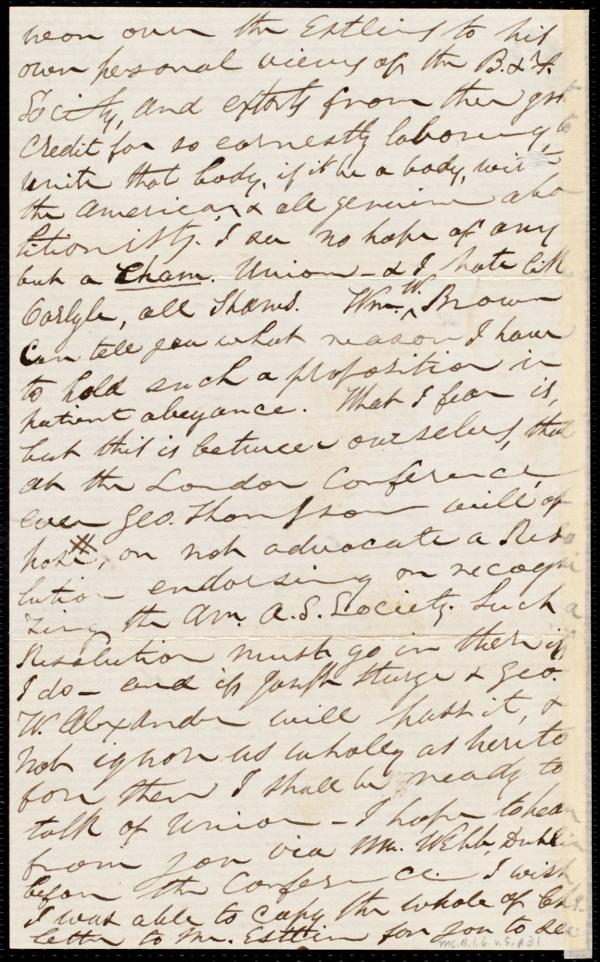 upon over the Estlins to his
own personal views of the B. & F.
Society, and extorts from them gst
Credit for so earnestly laboring to
unite that body, if it be a body, with
the American & all genuine abo
litionists. I see no hope of any
but a Cham. Union - & I hate like
Carlyle, all Shams. Wm. W. Brown
Can tell you what reason I have
to hold such a proposition in
patient abeyance. What I fear is,
but this is between ourselves, that
at the London Conference,
even Geo. Thompson will op
pose #, or not advocate a Reso
lution endorsing or recogni
zing the Am. A. S. Society. Such a
Resolution must go in there if
I do - and if Joseph Sturge & Geo.
W. Alexander will pass it, &
not ignore us wholly as hereto
fore then I shall be ready to
talk of Union - I hope to hear
from you via Mr. Webb, Dublin
before the Conference. I wish
I was able to copy the whole of
letter to Mr. Estlin for you to see
Ms. B.1.6 v.5, p.31